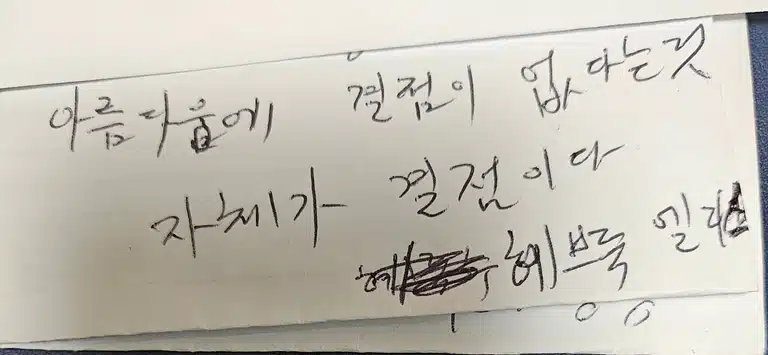 아름다움에 결점이 없다는것
자체가 결점이다
헤브룩 엘리스